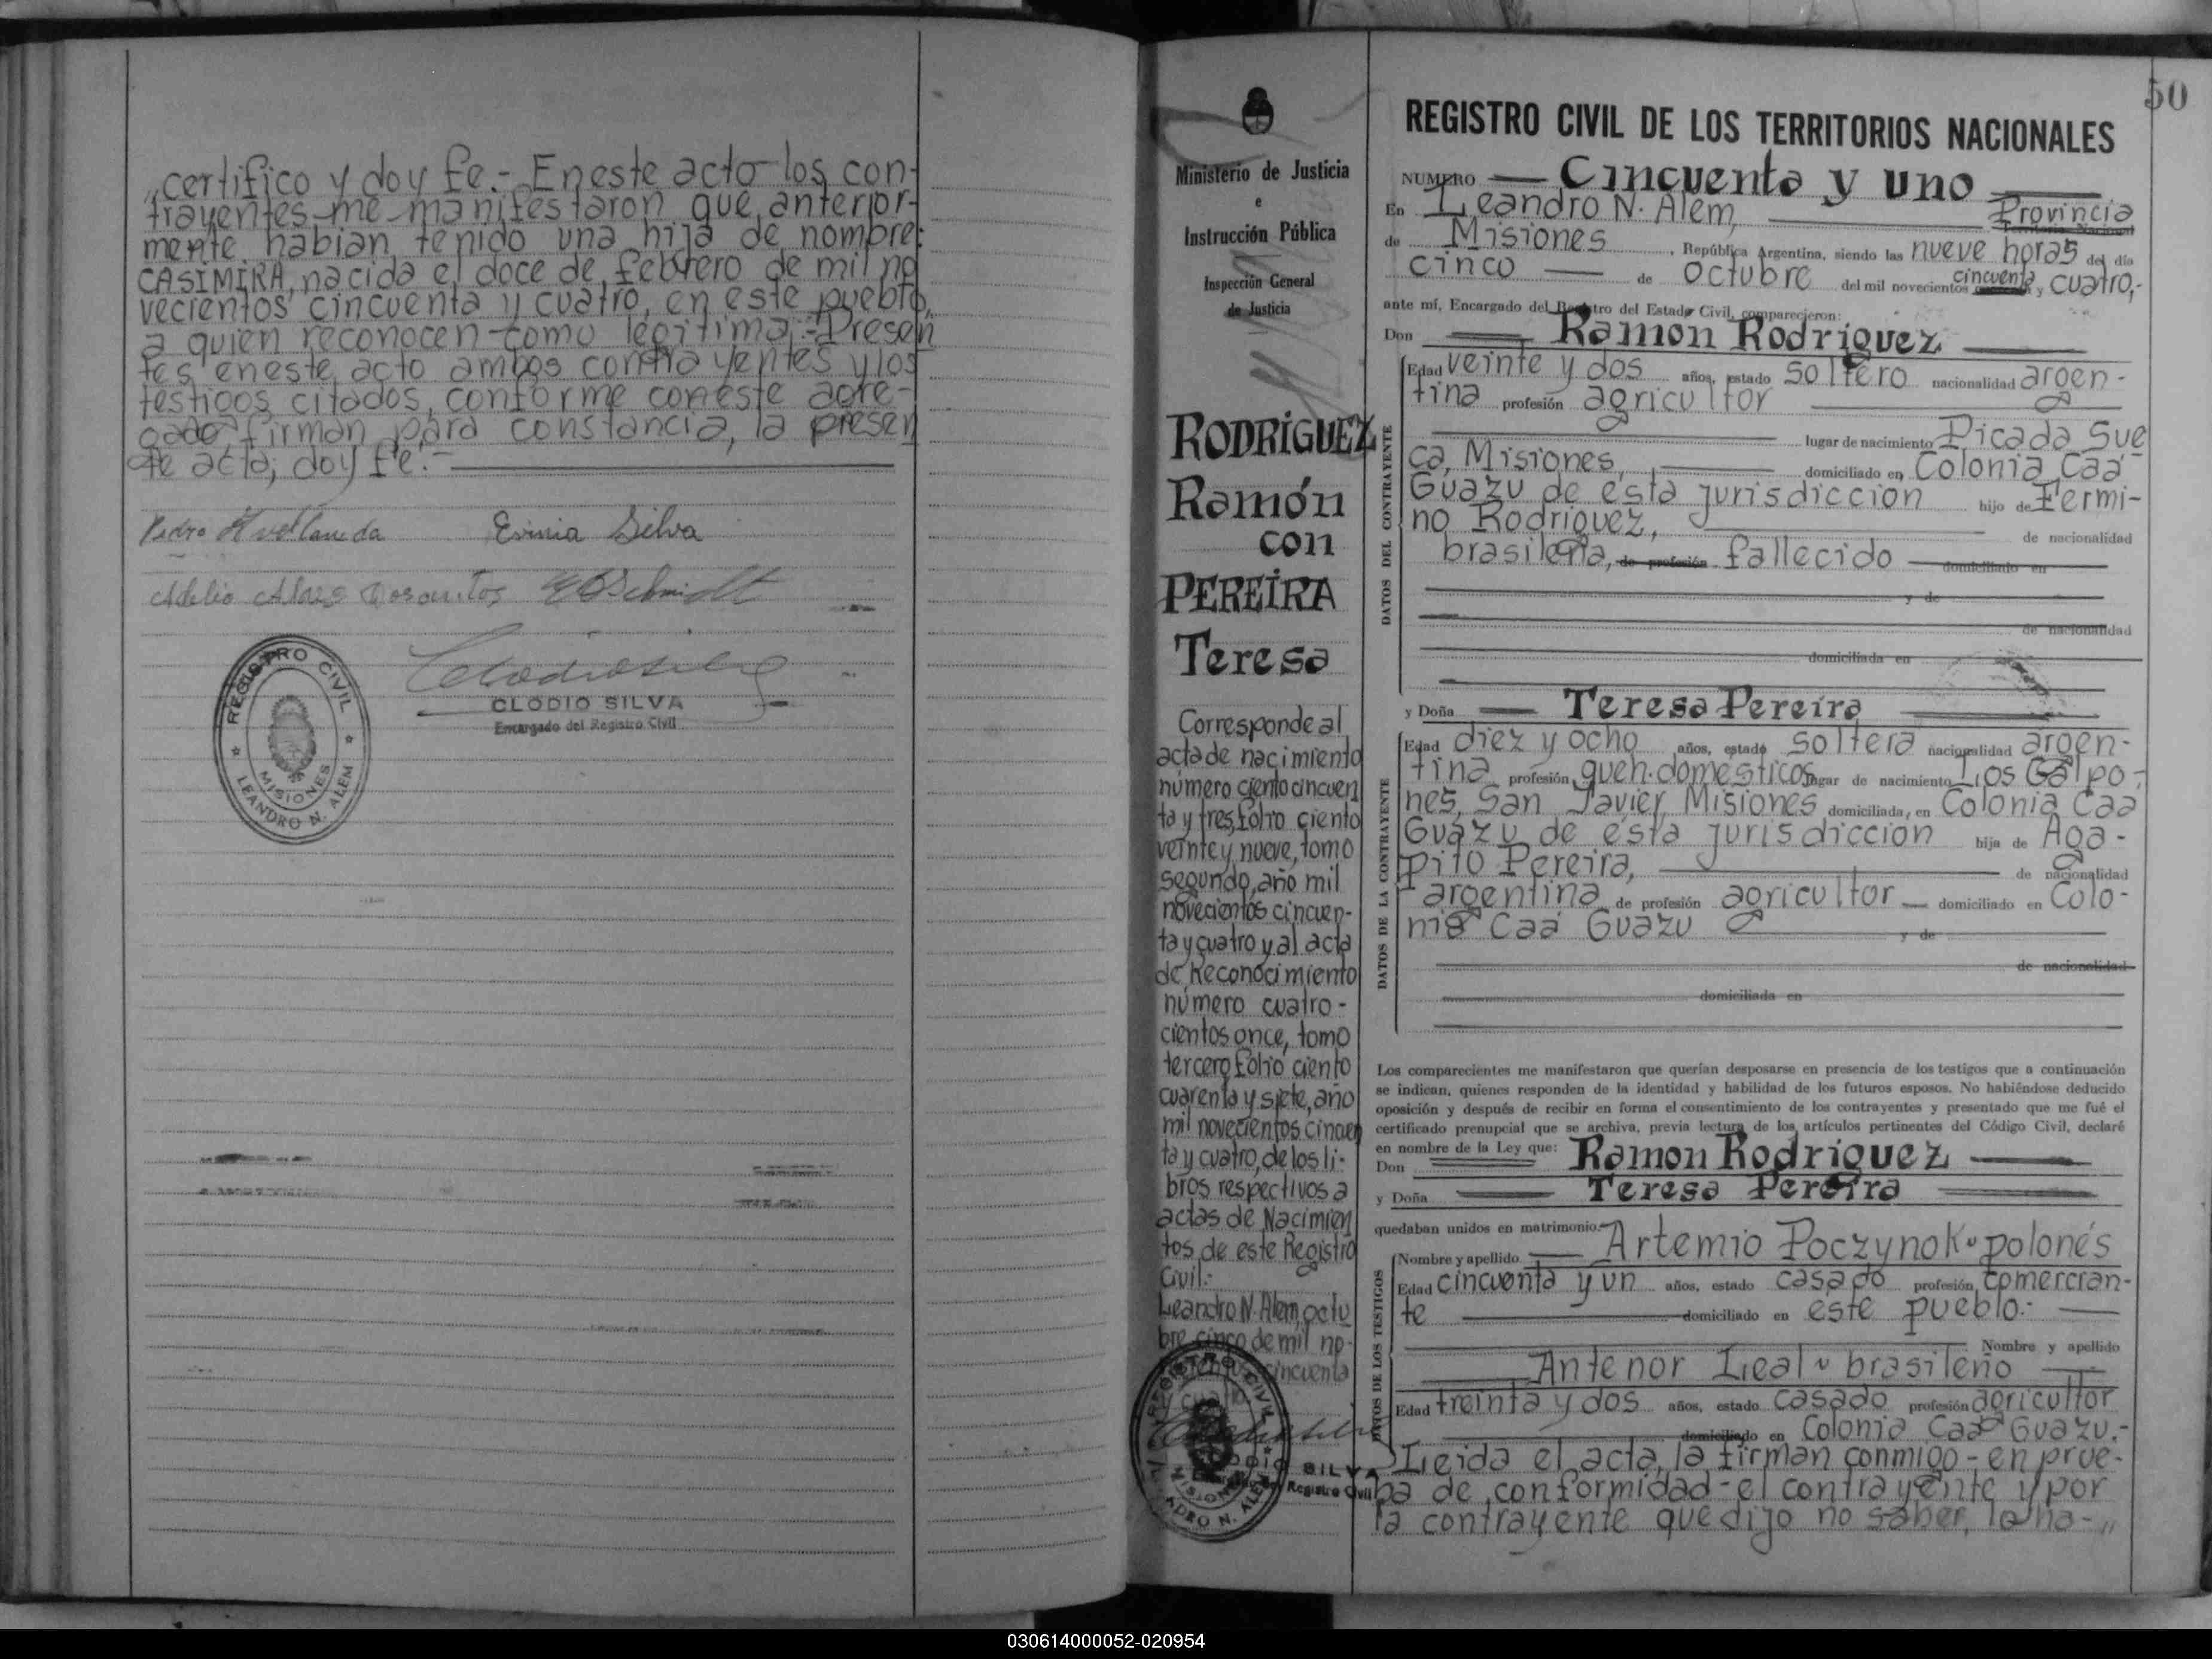 „certifico y doy fe.- En este acto los con-
trayentes me manifestaron que anterior-
mente habian tenido una hija de nombre:
CASIMIRA, nacida el doce de febrero de mil no
vecientos cincuenta y cuatro, en este pueblo,
a quien reconocen como legitima.- Presen
tes en este acto ambos contrayentes y los
testigos citados, conforme con este agre-
gado, firman para constancia, la presen
te acta; doy fe.-
Pedro Avellaneda Eximia Silva
Adelio Alves
REGISTRO CIVIL
MISIONES
LEANDRO N. ALEM
CLODIO SILVA
Encargado del Registro Civil
Ministerio de Justicia
e
Instrucción Pública
Inspección General
de Justicia
RODRIGUEZ
Ramón
con
PEREIRA
Teresa
Corresponde al
acta de nacimiento
número ciento cincuen
ta y tres, folio ciento
veinte y nueve, tomo
segundo, año mil
novecientos cincuen-
ta y cuatro y al acta
de Reconocimiento
número cuatro-
cientos once, tomo
tercero folio ciento
cuarenta y siete, año
mil novecientos cincuen
ta y cuatro, de los li-
bros respectivos a
actas de Nacimien
tos de este Registro
Civil.-
Leandro N. Alem, octu
bre cinco de mil no-
cincuenta
SILVA
Registro Civil
50
REGISTRO CIVIL DE LOS TERRITORIOS NACIONALES
NUMERO Cincuenta y uno
En Leandro N. Alem, Provincia
Territorio Nacional
de Misiones, República Argentina, siendo las nueve horas del día
cinco de octubre del mil novecientos cincuenta y cuatro,-
ante mí, Encargado del Registro del Estado Civil, comparecieron:
Don Ramon Rodriguez
DATOS DEL CONTRAYENTE
Edad veinte y dos años, estado soltero nacionalidad argen-
tina profesión agricultor
lugar de nacimiento Picada Sue
ca, Misiones, domiciliado en Colonia Caá
Guazu de ésta jurisdiccion hijo de Fermi-
no Rodriguez, de nacionalidad
brasileña, de profesión fallecido domiciliado en
y de
de nacionalidad
domiciliada en
y Doña Teresa Pereira
DATOS DE LA CONTRAYENTE
Edad diez y ocho años, estado soltera nacionalidad argen-
tina profesión queh. domésticos lugar de nacimiento Los Galpo-
nes, San Javier, Misiones domiciliada, en Colonia Caá
Guazu de ésta jurisdiccion hija de Aga-
pito Pereira, de nacionalidad
argentina de profesión agricultor domiciliado en Colo-
nia Caá Guazu y de
de nacionalidad
domiciliada en
Los comparecientes me manifestaron que querían desposarse en presencia de los testigos que a continuación
se indican, quienes responden de la identidad y habilidad de los futuros esposos. No habiéndose deducido
oposición y después de recibir en forma el consentimiento de los contrayentes y presentado que me fué el
certificado prenupcial que se archiva, previa lectura de los artículos pertinentes del Código Civil, declaré
en nombre de la Ley que:
Don Ramon Rodriguez
y Doña Teresa Pereira
quedaban unidos en matrimonio.
DATOS DE LOS TESTIGOS
Nombre y apellido Artemio Poczynok polonés
Edad cincuenta y un años, estado casado profesión comercian-
te domiciliado en este pueblo.-
Nombre y apellido
Antenor Leal brasileño
Edad treinta y dos años, estado casado profesión agricultor
domiciliado en Colonia Caá Guazu.-
Leida el acta, la firman conmigo - en prue-
ba de conformidad - el contrayente y por
la contrayente que dijo no saber, lo ha-„
030614000052-020954